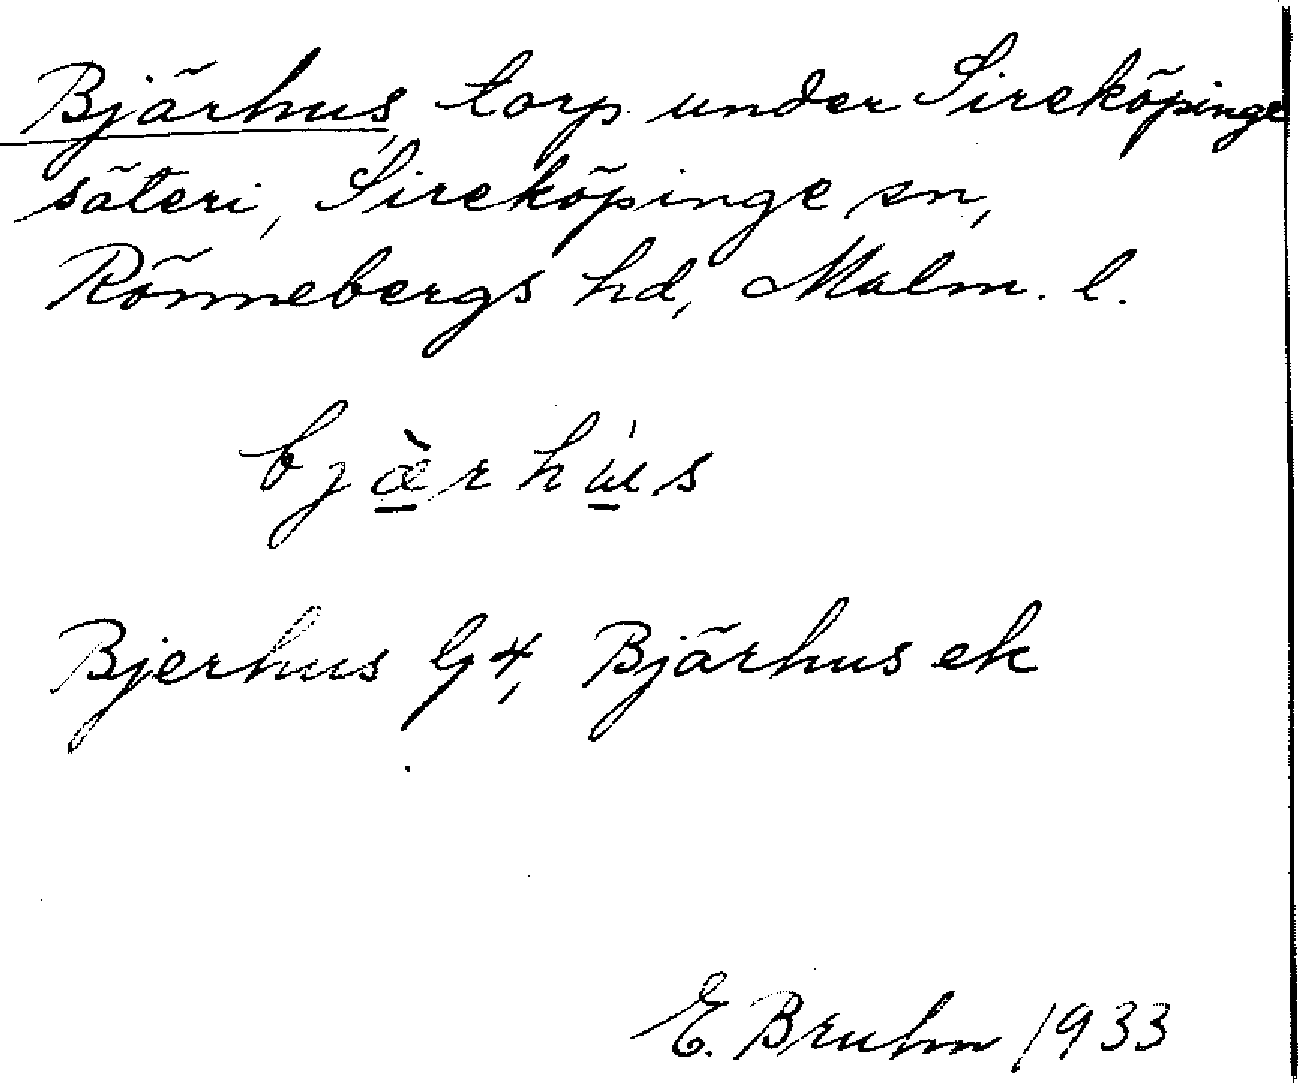 Bjärhus, torp under Sireköpinge
säteri, Sireköpinge sn,
Rönnebergs hd, Malm. l.
bjæ̀rhu̍s
Bjerhus G4, Bjärhus ek
E. Bruhn 1933